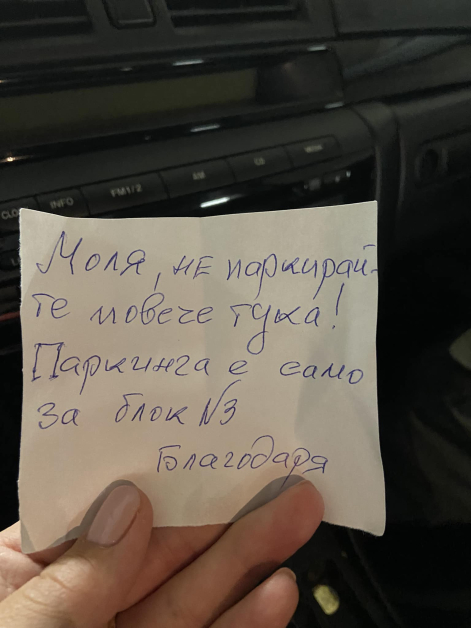 CLOC
INFO
FM1/2
AM
CD
Моля, не паркирай-
те повече тука!
Паркинга е само
за блок №3
Благодаря